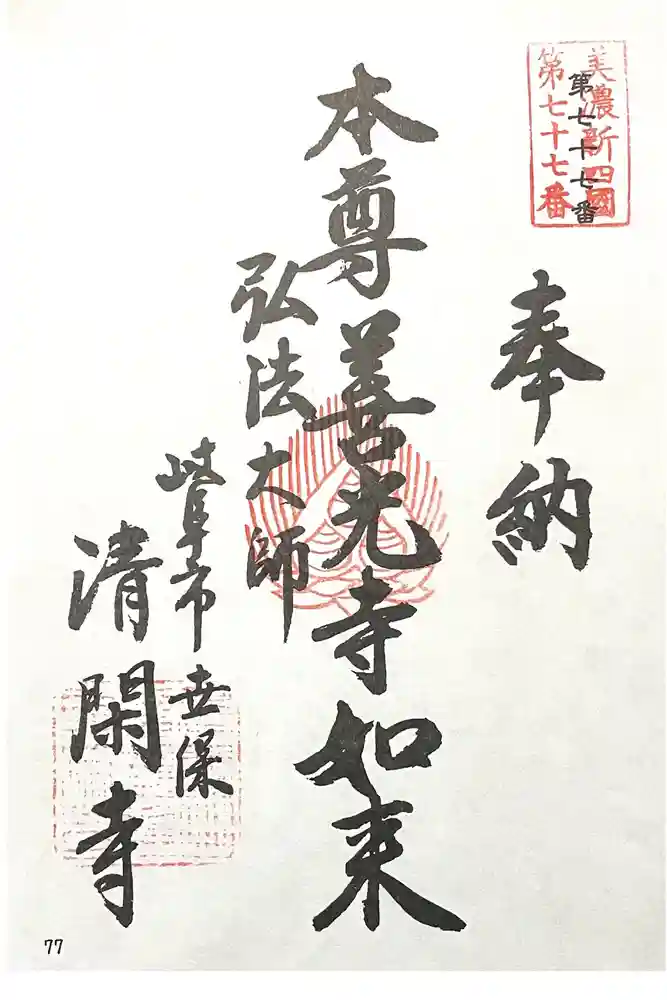 美濃新四國
第七十七番
第七十七番
奉納
本尊善光寺如来
弘法大師
岐阜市世保
清閑寺
77